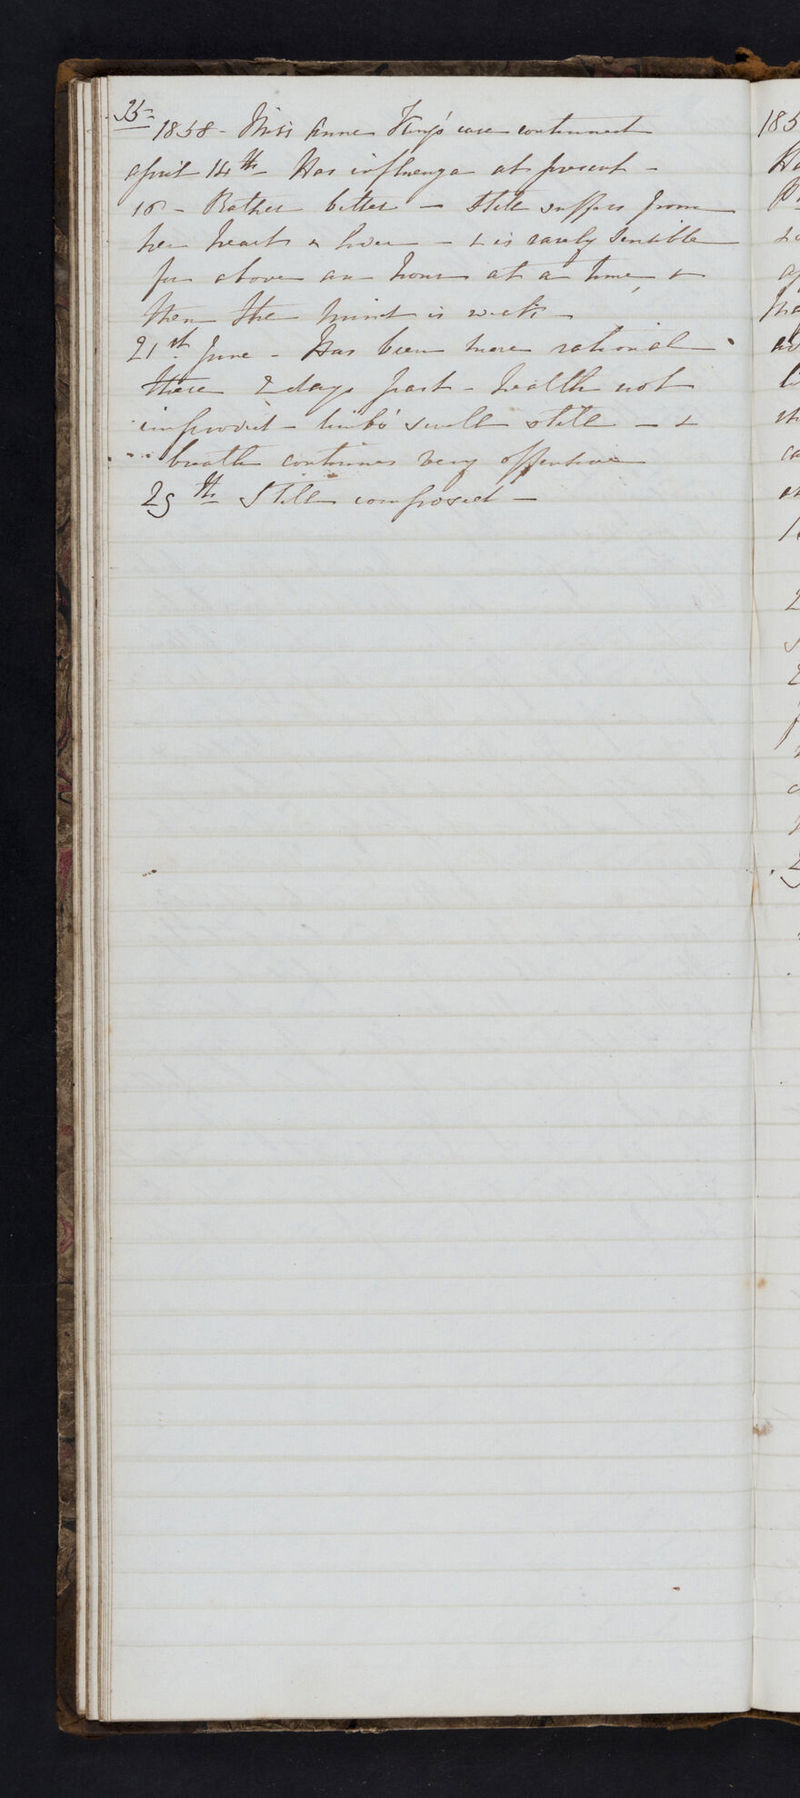 35
1858 - Miss Anne King's case continued
April 14th Has influenza at present -
18 - Rather better - still suffers from
her heart & liver - & is rarely sensible
for above an hour at a time, &
then the mind is weak -
21st June - Has been more rational
these 2 days past - health not
improved - limbs swell still - &
breath continues very offensive
25th Still composed -
185